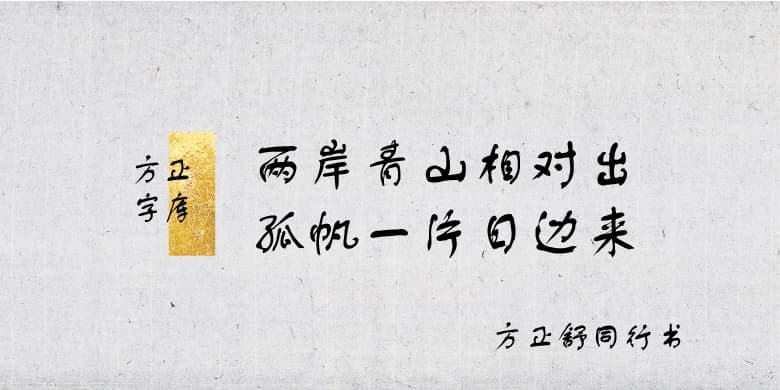 方正
字库
两岸青山相对出
孤帆一片日边来
方正舒同行书